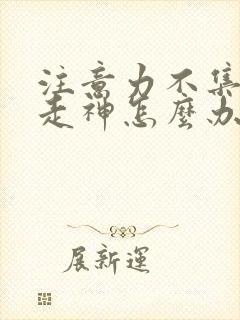 注意力不集
走神怎麼办
展新運